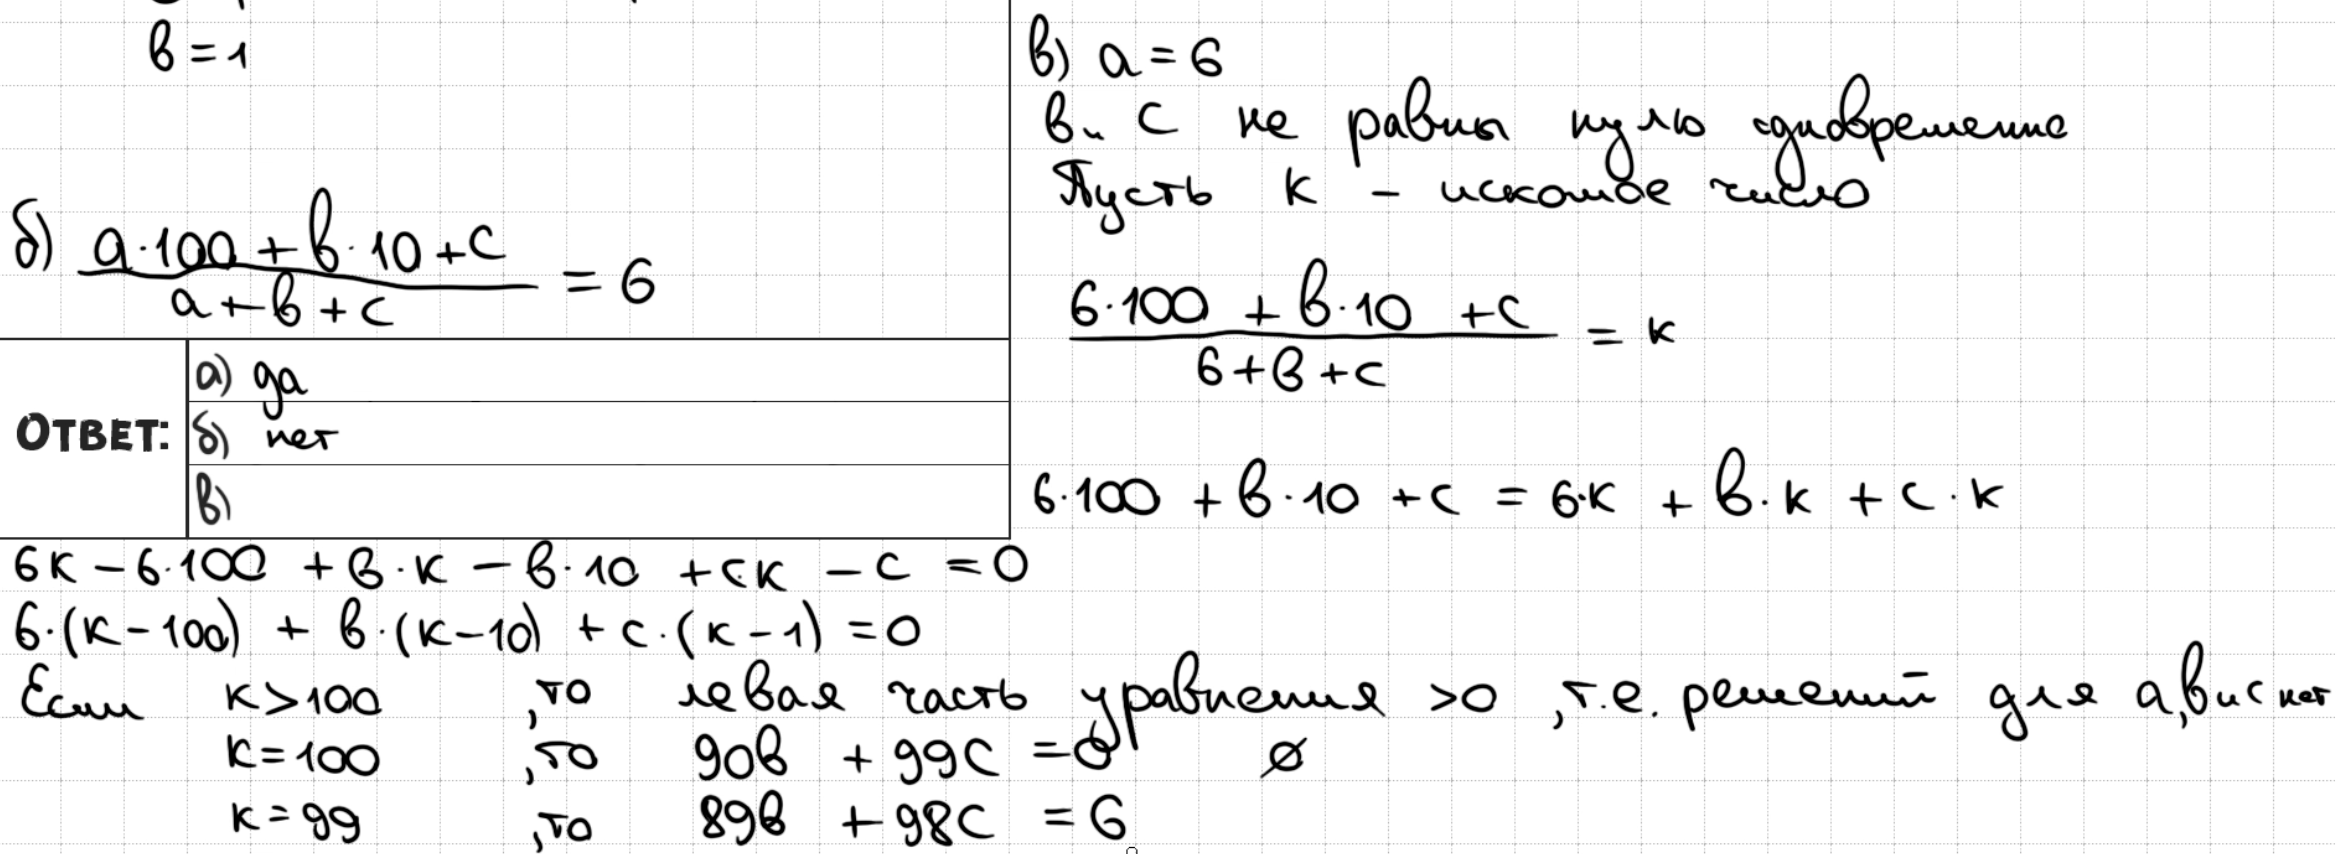 в = 1
б) (a·100 + в·10 + c)/(a + в + c) = 6
Ответ:
а) да
б) нет
в)
в) a = 6
в и c не равны нулю одновременно
Пусть k – искомое число
(6·100 + в·10 + c)/(6 + в + c) = k
6·100 + в·10 + c = 6·k + в·k + c·k
6k – 6·100 + в·k – в·10 + ck – c = 0
6·(k – 100) + в·(k – 10) + c·(k – 1) = 0
Если k > 100 , то левая часть уравнения > 0 , т.е. решений для a, в и c нет
k = 100 , то 90в + 99c = 0 ∅
k = 99 , то 89в + 98c = 6